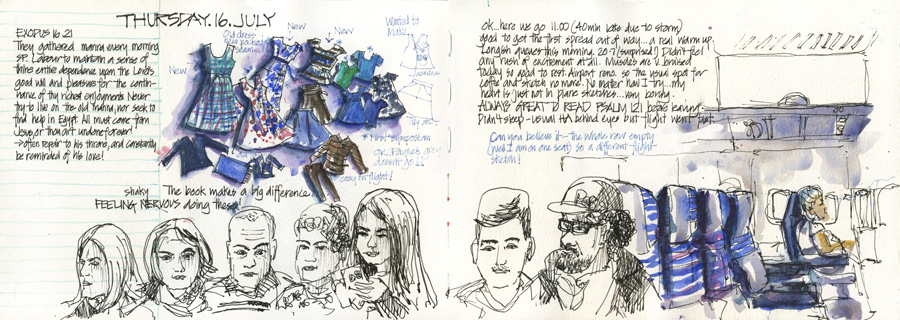 THURSDAY. 16. JULY
EXODUS 16.21
They gathered manna every morning
SP. Labour to maintain a sense of
thine entire dependence upon the Lord's
good will and pleasure for the contin-
uance of thy richest enjoyments. Never
try to live on the old manna, nor seek to
find help in Egypt. All must come from
Jesus, or thou art undone forever!
→ often repair to his throne, and constantly
be reminded of his love!
New
Old dress
New
New
Wanted to
Make
New
* First symposium
OK Payne's grey
doesn't go!!
cosy in flight!
shaky
The book makes a big difference
FEELING NERVOUS doing these!
Ok.. here we go 11.00 (40min late due to storm)
good to get the first spread out of way... a real warm up.
Longish queues this morning 20-7 (surprised!) Didn't feel
any rush of excitement at all. Muscles are v. bruised
today so good to rest. Airport reno. so the usual spot for
coffee and sketch no more. No matter how I try... my
heart is just not in plane sketches... way boring...
ALWAYS GREAT TO READ PSALM 121 before leaving
Didn't sleep - usual HA behind eyes but flight went fast.
Can you believe it - the whole row empty
(well I am on one seat) so a different flight
sketch!